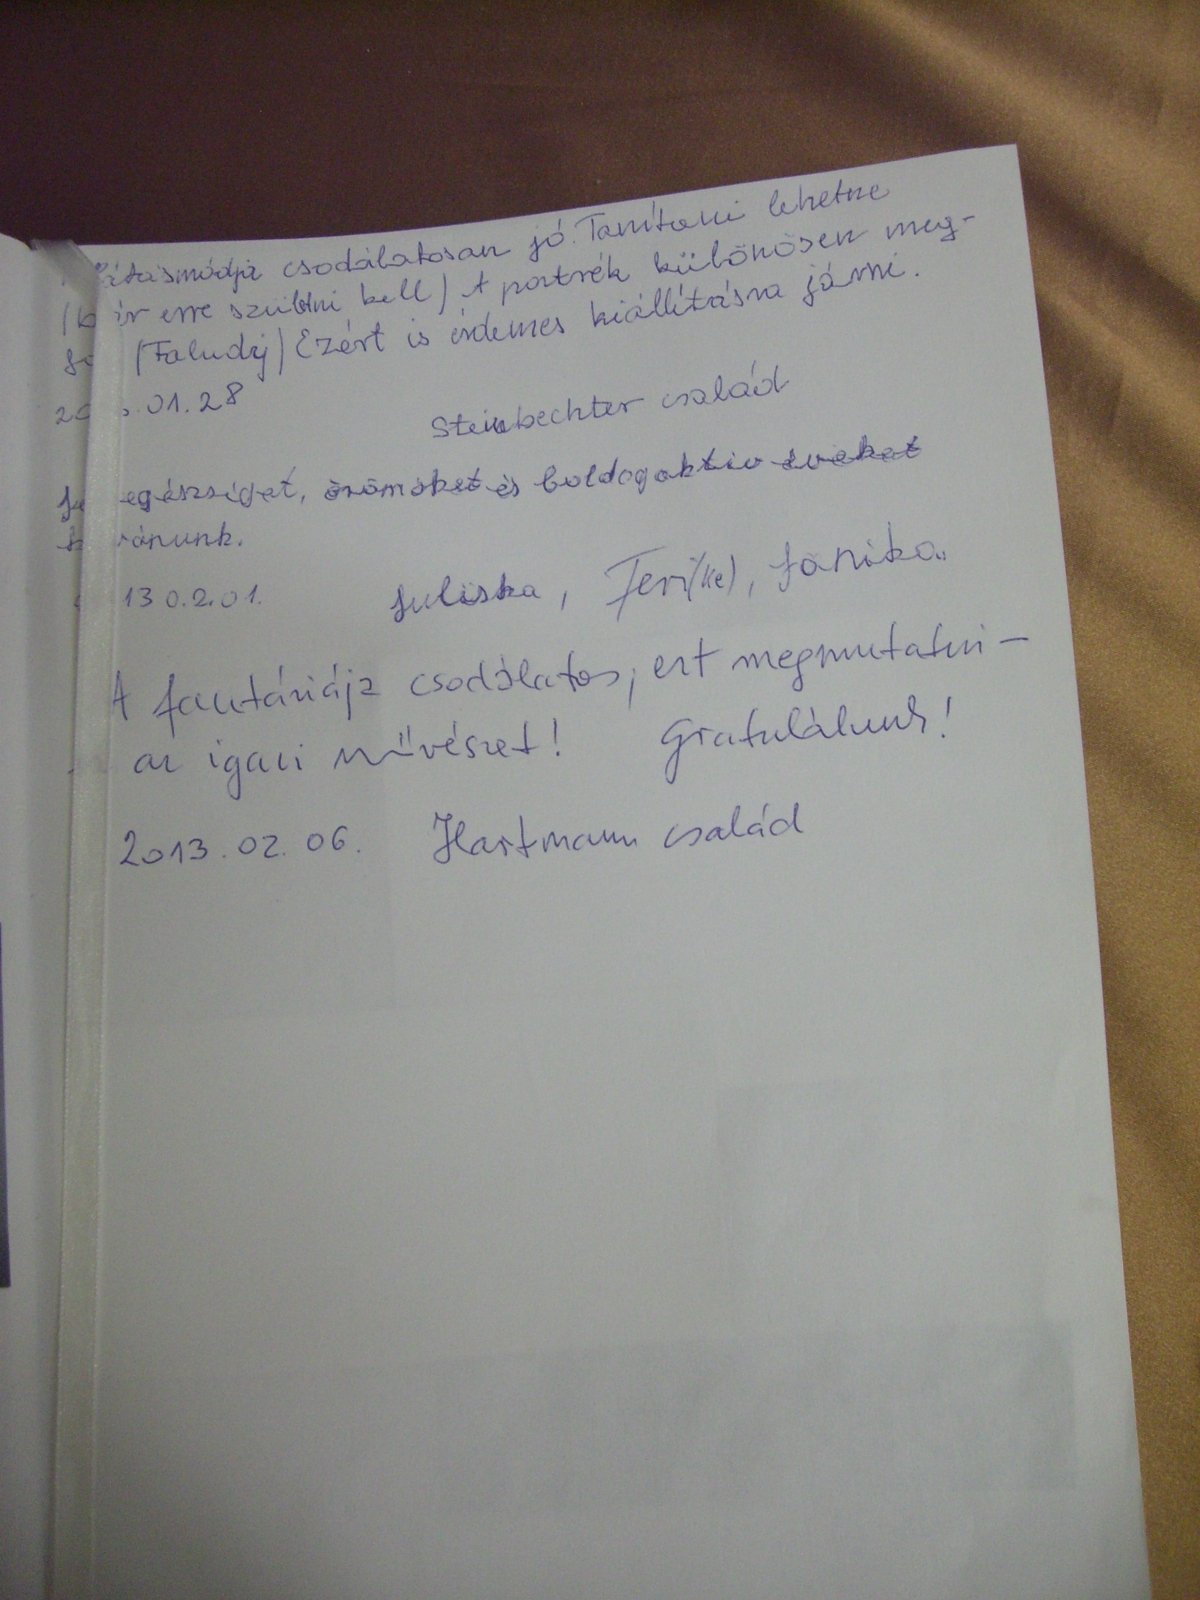 látásmódja csodálatosan jó. Tanítani lehetne
(bár erre születni kell) A portrék különösen meg-
(Faludy) Ezért is érdemes kiállításra járni.
01.28
Steinbechter család
egészséget, örömöket és boldog aktiv éveket
kívánunk.
13 0.2.01. Juliska, Feri(ke), Janika.
A fantáziája csodálatos, ezt megmutatni –
az igazi művészet! Gratulálunk!
2013.02.06. Hartmann család